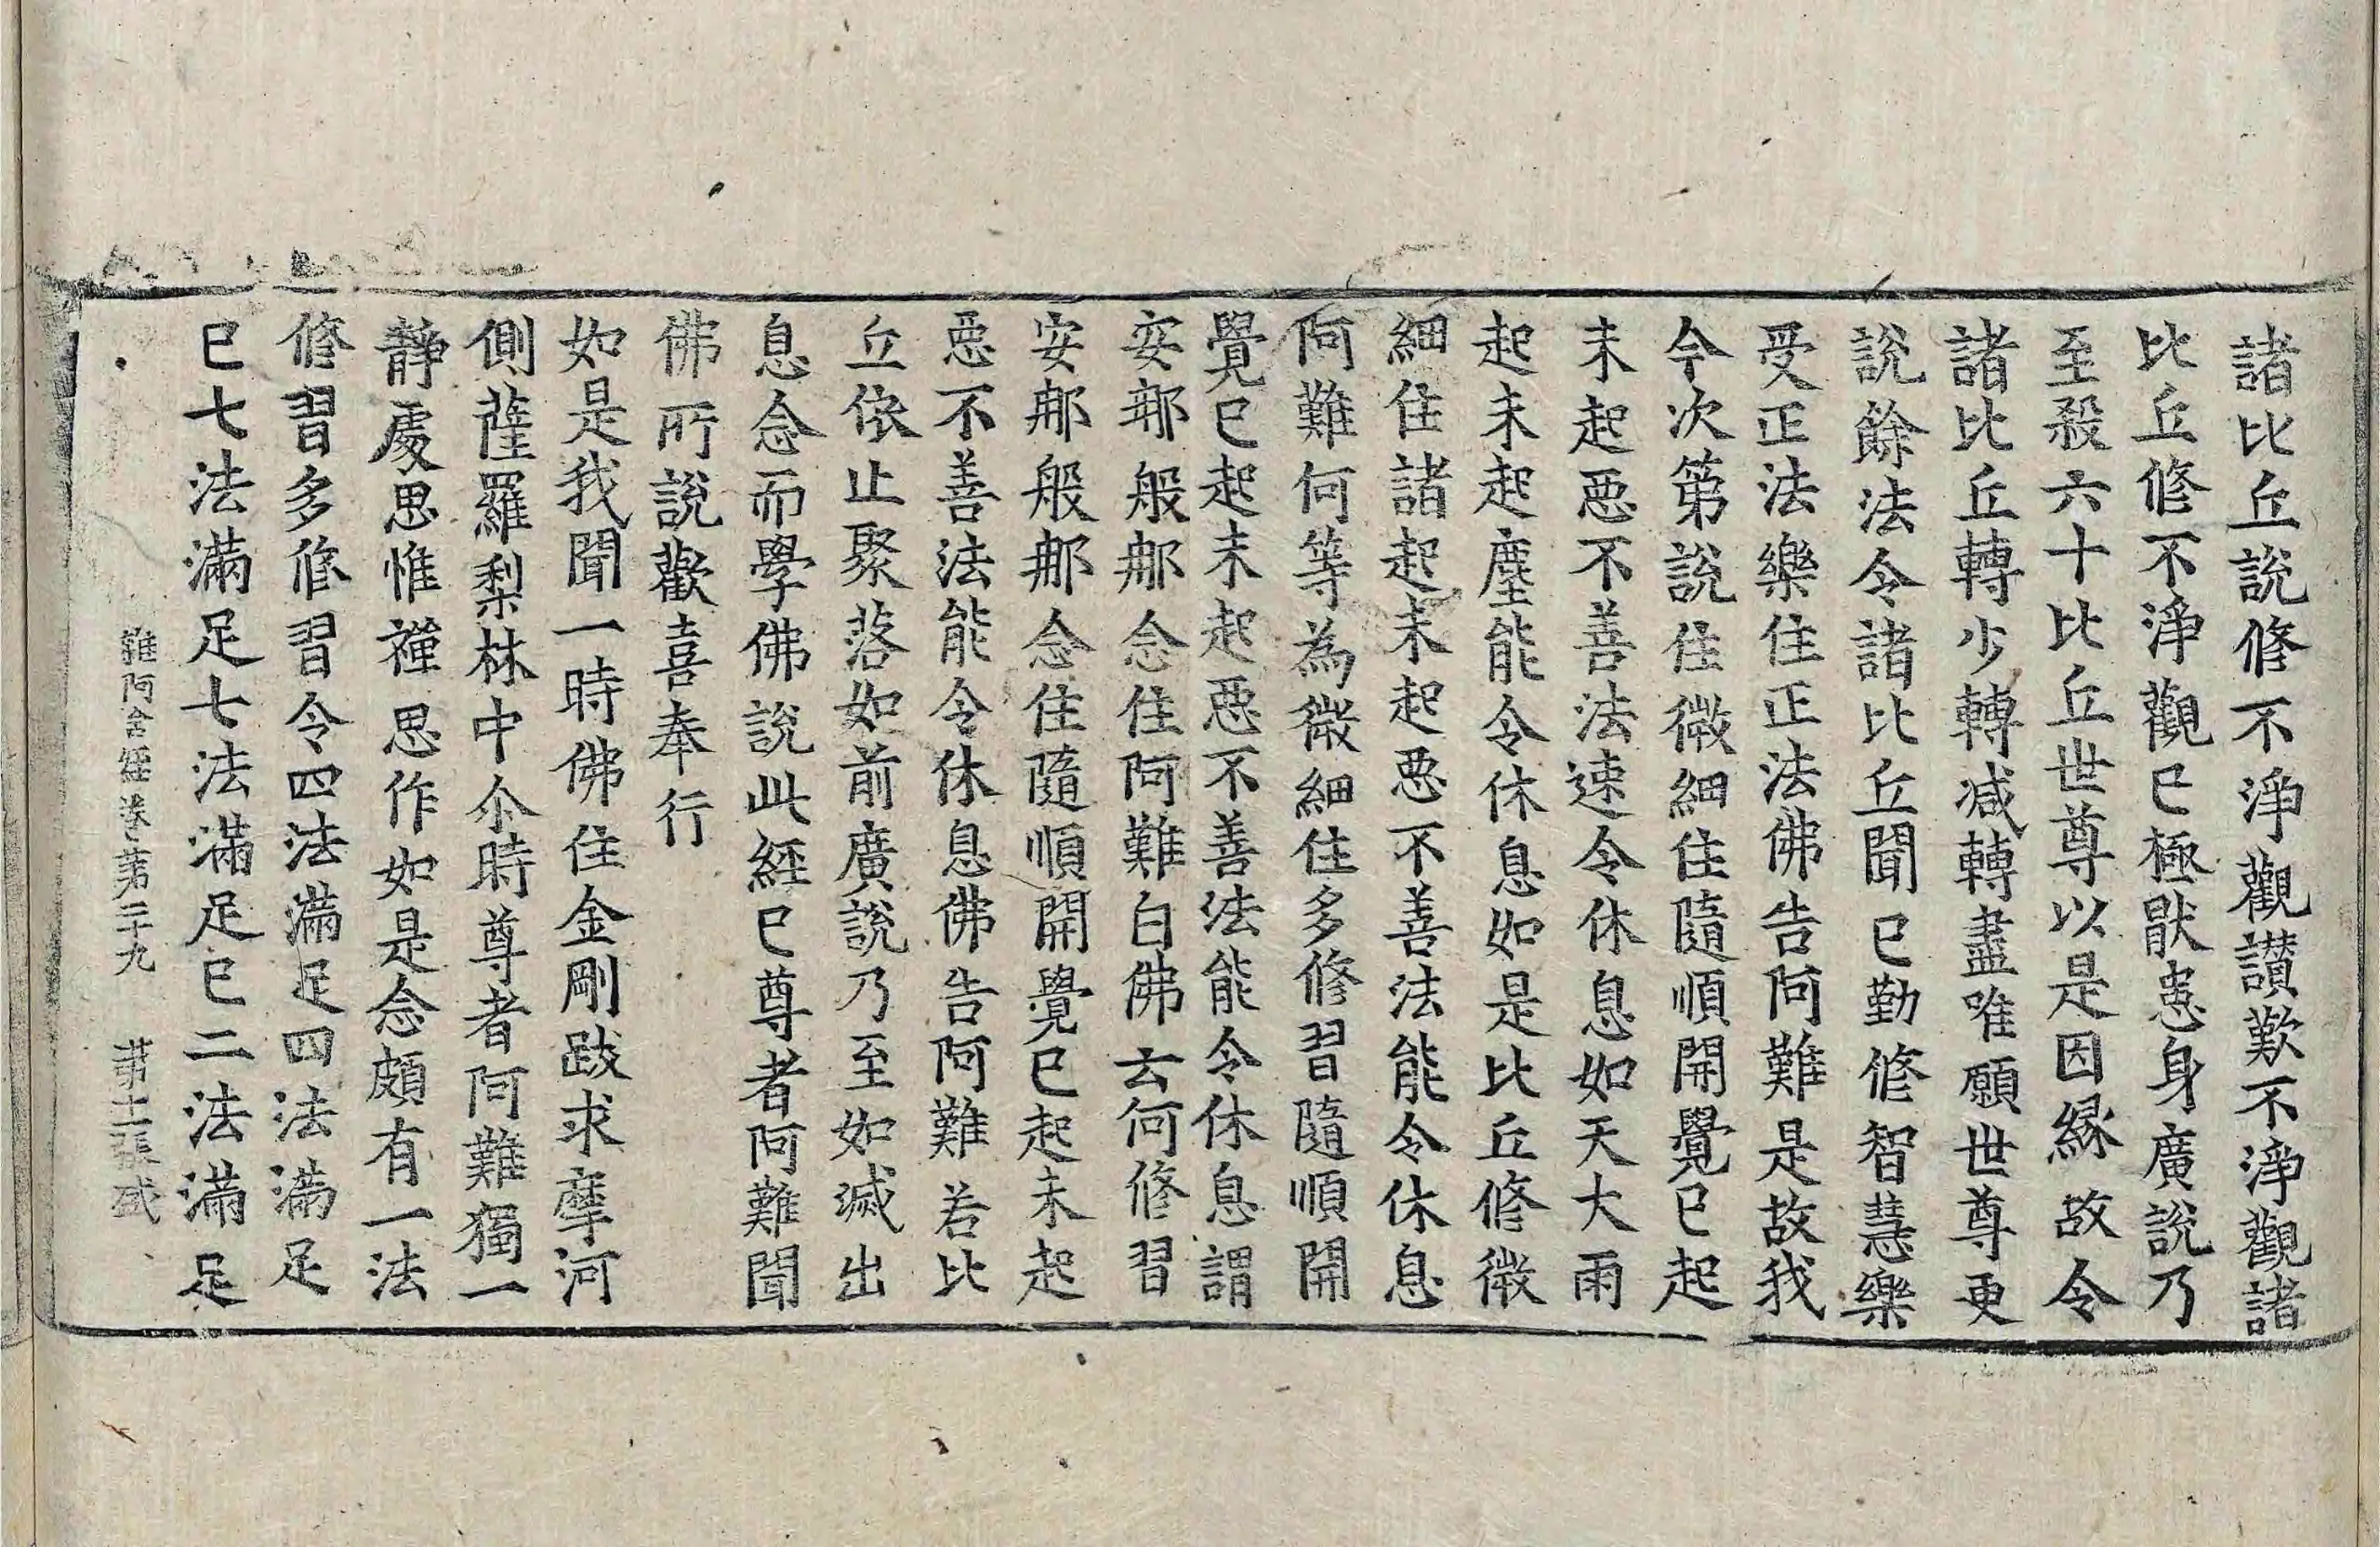 諸比丘說修不淨觀讃歎不淨觀諸
比丘修不淨觀已極猒患身廣說乃
至殺六十比丘世尊以是因縁故令
諸比丘轉少轉减轉盡唯願世尊更
說餘法令諸比丘聞已勤修智慧樂
受正法樂住正法佛告阿難是故我
今次第說住微細住隨順開覺已起
未起惡不善法速令休息如天大雨
起未起塵能令休息如是比丘修微
細住諸起未起惡不善法能令休息
阿難何等為微細住多修習隨順開
覺已起未起惡不善法能令休息謂
安那般那念住阿難白佛云何修習
安那般那念住隨順開覺已起未起
惡不善法能令休息佛告阿難若比
丘依止聚落如前廣說乃至如滅出
息念而學佛說此經已尊者阿難聞
佛所說歡喜奉行
如是我聞一時佛住金剛跋求摩河
側薩羅梨林中尒時尊者阿難獨一
靜處思惟禪思作如是念頗有一法
修習多修習令四法滿足四法滿足
已七法滿足七法滿足已二法滿足
雜阿含經卷第二十九 第十二張 盛